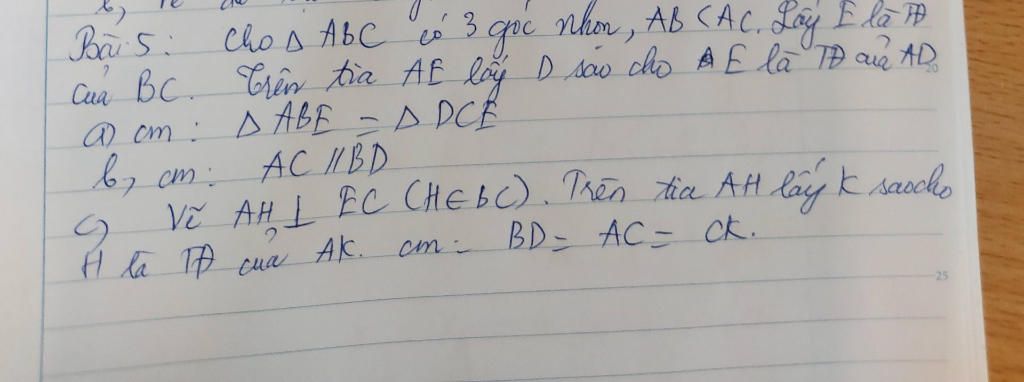 Bài 5: Cho △ ABC có 3 góc nhọn, AB < AC. Lấy E là TĐ
của BC. Trên tia AE lấy D sao cho E là TĐ của AD
a) cm: △ ABE = △ DCE
b, cm: AC // BD
c) Vẽ AH ⊥ EC (H ∈ BC). Trên tia AH lấy K sao cho
H là TĐ của AK. cm: BD = AC = CK.
20
25